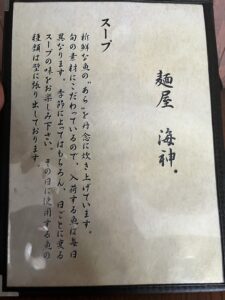 麺屋 海神
スープ
新鮮な魚の"あら"を丹念に炊き上げています。
旬の素材にこだわっているので、入荷する魚は毎日
異なります。季節によってはもちろん、日ごとに変る
スープの味をお楽しみ下さい。その日に使用する魚の
種類は壁に張り出しております。